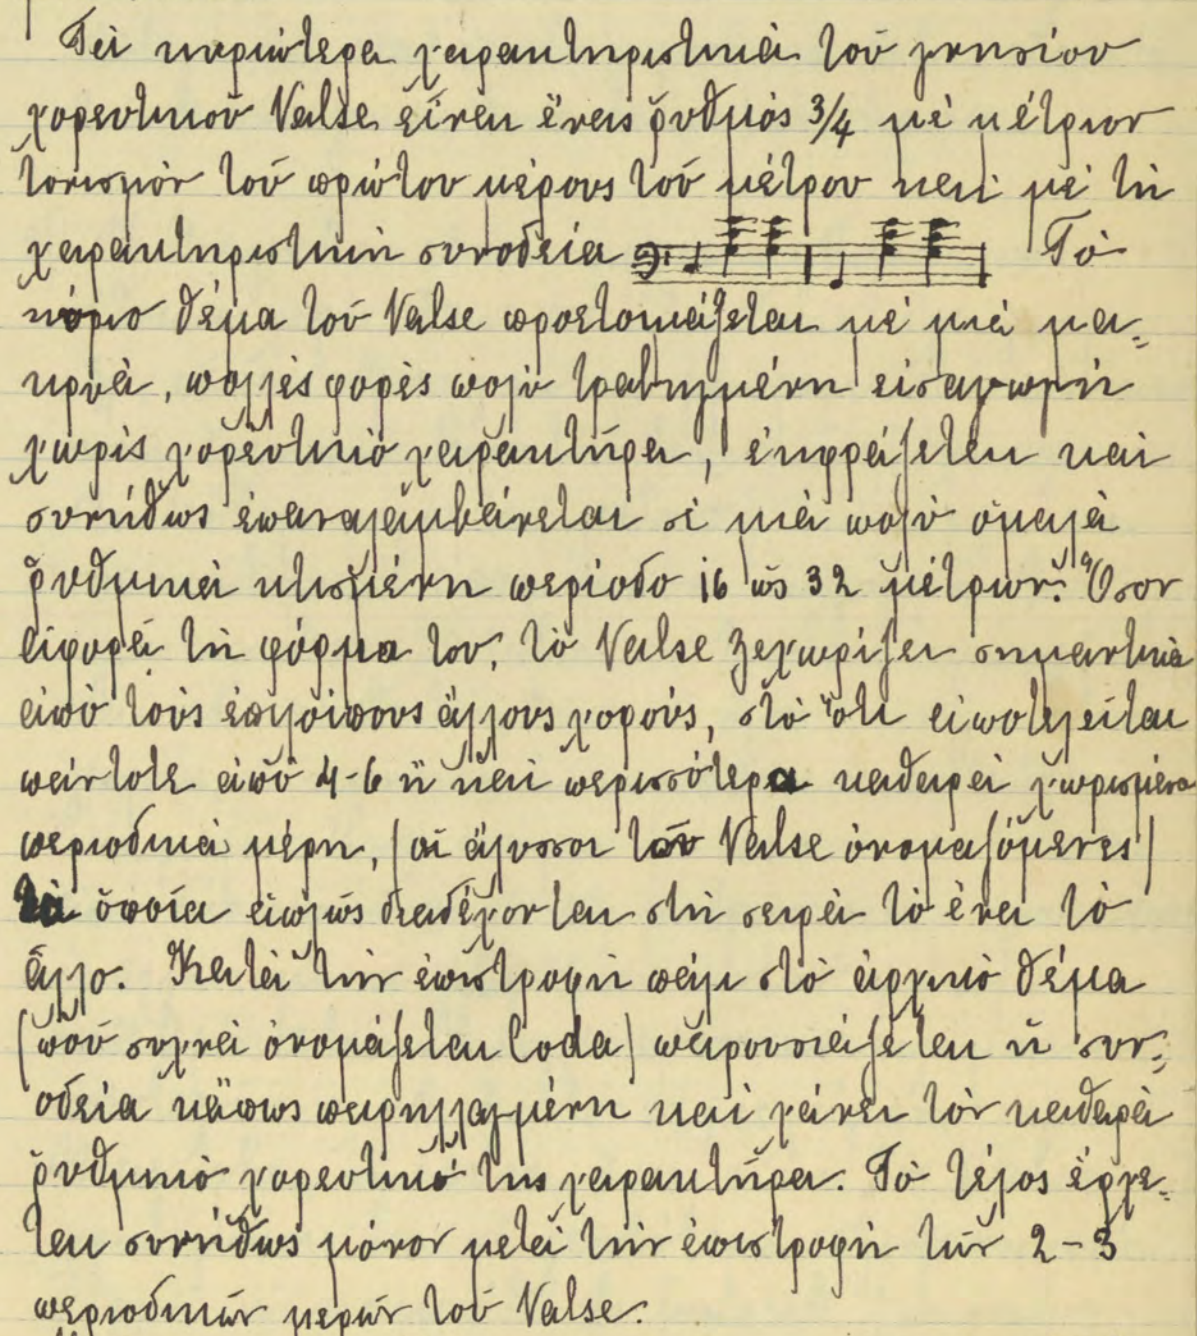 Τὰ κυριώτερα χαρακτηριστικὰ τοῦ γνησίου
χορευτικοῦ Valse εἶναι ἕνας ῥυθμὸς 3/4 μὲ μέτριον
τονισμὸν τοῦ πρώτου μέρους τοῦ μέτρου καὶ μὲ τὴ
χαρακτηριστικὴ συνοδεία Τὸ
κύριο θέμα τοῦ Valse προετοιμάζεται μὲ μιὰ μα-
κρυὰ, πολλὲς φορὲς πολὺ τραβηγμένη εἰσαγωγὴ
χωρὶς χορευτικὸ χαρακτῆρα, ἐκφράζεται καὶ
συνήθως ἐπαναλαμβάνεται σὲ μιὰ πολὺ ὁμαλὰ
ῥυθμικὰ κτισμένη περίοδο 16 ὡς 32 μέτρων. Ὅσον
ἀφορᾶ τὴ φόρμα του, τὸ Valse ξεχωρίζει σημαντικὰ
ἀπὸ τοὺς ἐπιλοίπους ἄλλους χορούς, στὸ ὅτι ἀποτελεῖται
πάντοτε ἀπὸ 4-6 ἢ καὶ περισσότερα καθαρὰ χωρισμένα
περιοδικὰ μέρη, (οἱ ἅλυσσοι τοῦ Valse ὀνομαζόμενες)
τὰ ὁποῖα ἁπλῶς διαδέχονται στὴ σειρὰ τὸ ἕνα τὸ
ἄλλο. Κατὰ τὴν ἐπιστροφὴ πάλι στὸ ἀρχικὸ θέμα
(ποῦ συχνὰ ὀνομάζεται Coda) παρουσιάζεται ἡ συν-
οδεία κάπως παρηλλαγμένη καὶ χάνει τὸν καθαρὰ
ῥυθμικὸ χορευτικό της χαρακτῆρα. Τὸ τέλος ἔρχε-
ται συνήθως μόνον μετὰ τὴν ἐπιστροφὴ τῶν 2-3
περιοδικῶν μερῶν τοῦ Valse.